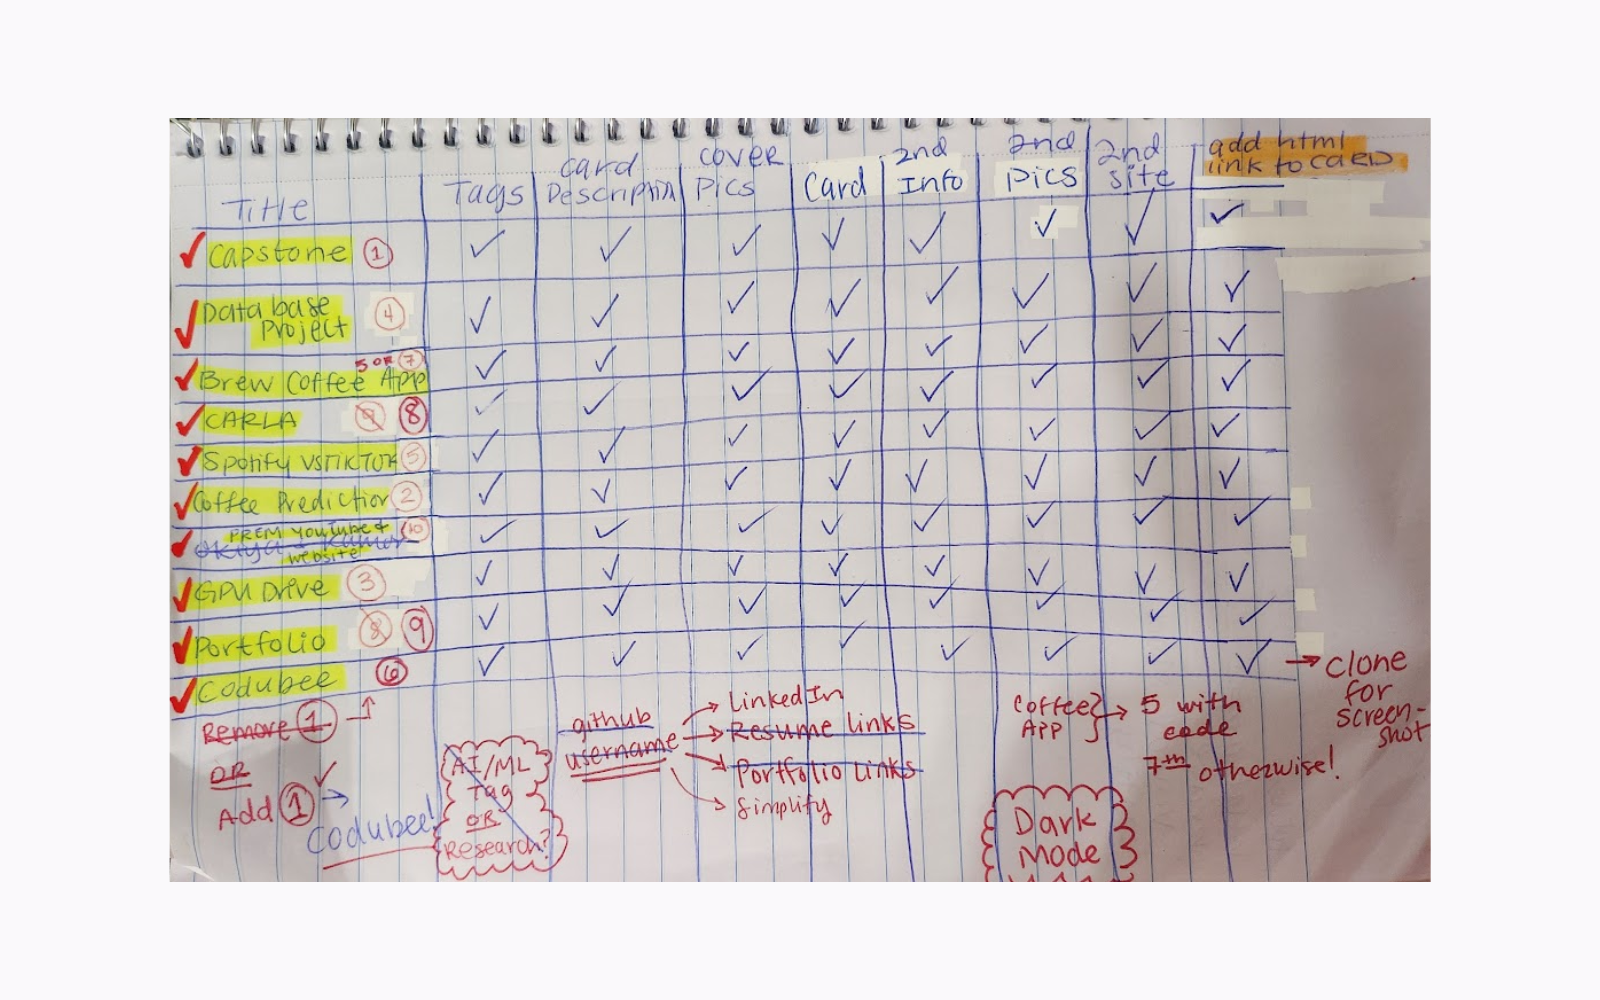 Title
Tags
card
Description
cover
Pics
Card
2nd
Info
2nd
pics
2nd
site
add html
link to CARD
Capstone 1
Database
Project 4
5 OR 7
Brew Coffee App
CARLA 9 8
Spotify vs TikTok 5
Coffee Prediction 2
PREM YouTube &
website 10
GPU Drive 3
Portfolio 8 9
Codubee 6
→ clone
for
screen-
shot
Remove 1
OR
Add 1 →
Codubee!
AI/ML
Tag
OR
Research?
github
username
LinkedIn
Resume links
Portfolio Links
Simplify
Coffee
APP
5 with
code
7th otherwise!
Dark
Mode